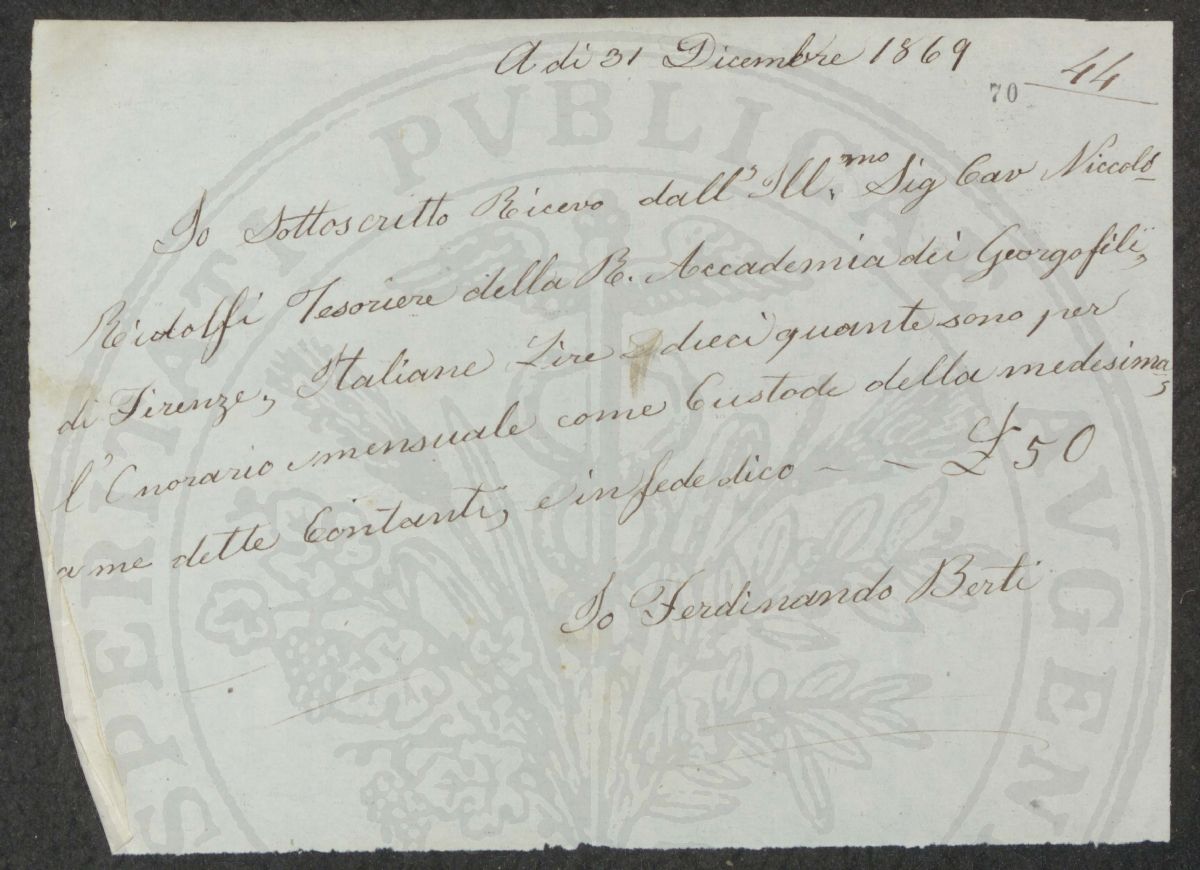 A di 31 Dicembre 1869
44
70
Io Sottoscritto Ricevo dall' Ill.mo Sig Cav Niccolò
Ridolfi Tesoriere della R. Accademia dei Georgofili,
di Firenze, Italiane Lire dieci quante sono per
l'Onorario mensuale come Custode della medesima,
a me dette Contanti, e in fede dico - - £ 50
Io Ferdinando Berti
PROSPERITATI PVBLICAE AVGEN